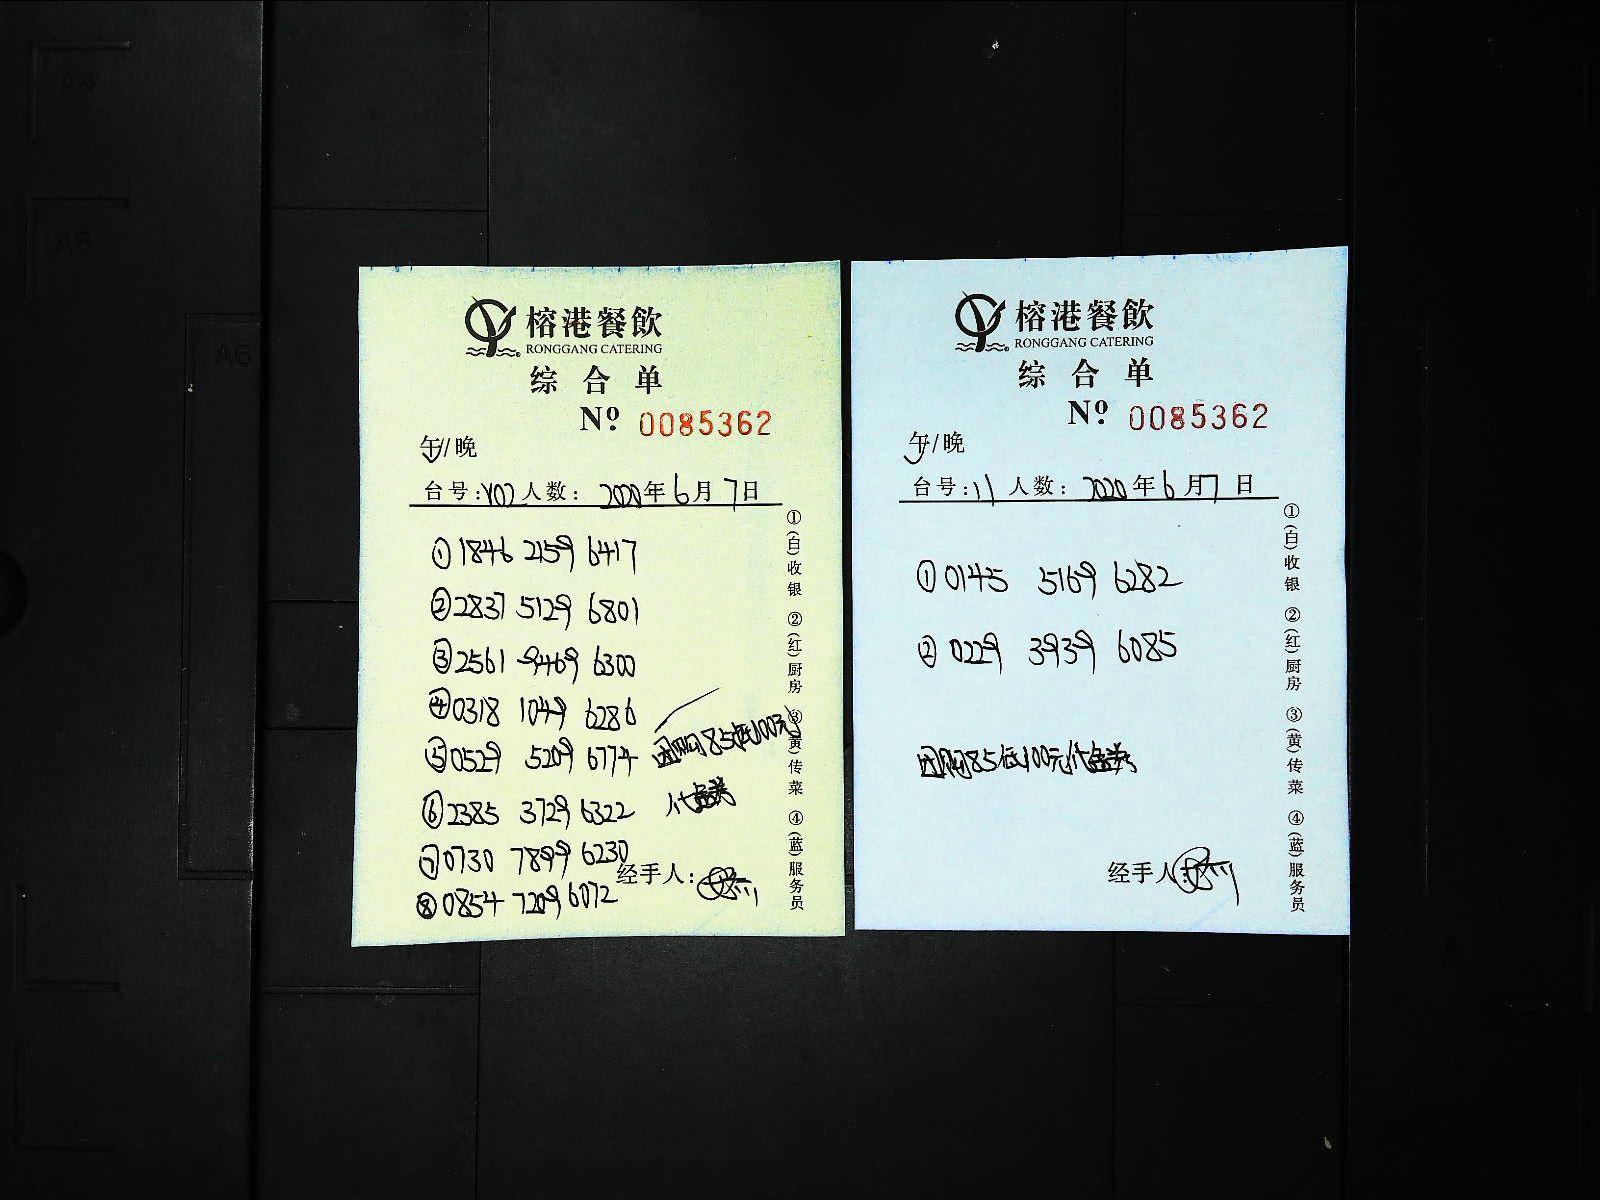 榕港餐飲
RONGGANG CATERING
综合单
Nº 0085362
午/晚
台号:V02人数: 2020年6月7日
①1846 2159 6417
②2837 5129 6801
③2561 9469 6300
④0318 1049 6286
⑤0529 5209 6774
团购85抵100元
代金券
⑥2385 3729 6322
⑦0730 7899 6230
⑧0854 7209 6072
经手人:
①(白)收银 ②(红)厨房 ③(黄)传菜 ④(蓝)服务员
榕港餐飲
RONGGANG CATERING
综合单
Nº 0085362
午/晚
台号:11 人数: 2020年6月7日
①0145 5169 6282
②0229 3939 6085
团购85抵100元代金券
经手人:
①(白)收银 ②(红)厨房 ③(黄)传菜 ④(蓝)服务员